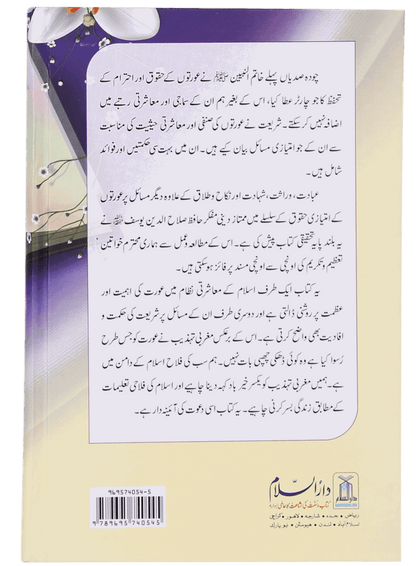 چودہ صدیاں پہلے خاتم النبیین ﷺ نے عورتوں کے حقوق اور احترام کے
تحفظ کا جو چارٹر عطا کیا، اس کے بغیر ہم ان کے سماجی اور معاشرتی رتبے میں
اضافہ نہیں کر سکتے۔ شریعت نے عورتوں کی صنفی اور معاشرتی حیثیت کی مناسبت
سے ان کے جو امتیازی مسائل بیان کیے ہیں۔ ان میں بہت سی حکمتیں اور فوائد
شامل ہیں۔
عبادت، وراثت، شہادت اور نکاح و طلاق کے علاوہ دیگر مسائل پر عورتوں
کے امتیازی حقوق کے سلسلے میں ممتاز دینی مفکر حافظ صلاح الدین یوسف نے
یہ بلند پایہ تحقیقی کتاب پیش کی ہے۔ اس کے مطالعہ و عمل سے ہماری محترم خواتین
تعظیم و تکریم کی اونچی سے اونچی مسند پر فائز ہو سکتی ہیں۔
یہ کتاب ایک طرف اسلام کے معاشرتی نظام میں عورت کی اہمیت اور
عظمت پر روشنی ڈالتی ہے اور دوسری طرف ان کے مسائل پر شریعت کی حکمت و
افادیت بھی واضح کرتی ہے۔ اس کے برعکس مغربی تہذیب نے عورت کو جس طرح
رسوا کیا ہے وہ کوئی ڈھکی چھپی بات نہیں۔ ہم سب کی فلاح اسلام کے دامن میں
ہے۔ ہمیں مغربی تہذیب کو یکسر خیر باد کہہ دینا چاہیے اور اسلام کی فلاحی تعلیمات
کے مطابق زندگی بسر کرنی چاہیے۔ یہ کتاب اسی دعوت کی آئینہ دار ہے۔
969574054-5
9 789695 740545
دارالسلام
کتاب و سنت کی اشاعت کا عالمی ادارہ
ریاض • جدہ • شارجہ • لاہور • کراچی
اسلام آباد • لندن • ہیوسٹن • نیو یارک